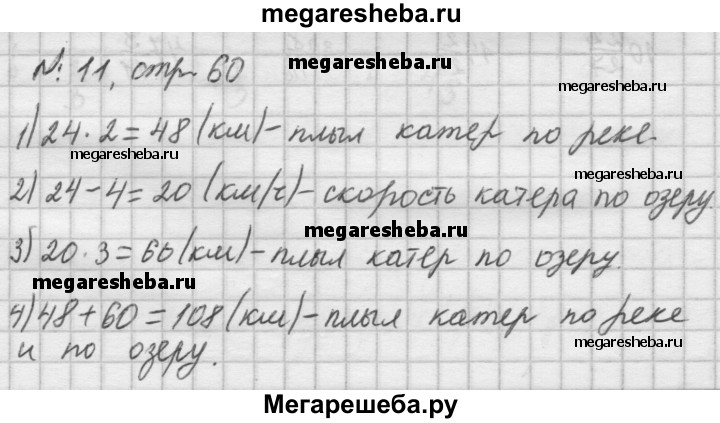 megaresheba.ru
№ 11, стр 60
megaresheba.ru
megaresheba.ru
1) 24 · 2 = 48 (км) - плыл катер по реке.
megaresheba.ru
2) 24 - 4 = 20 (км/ч) - скорость катера по озеру.
megaresheba.ru
3) 20 · 3 = 60 (км) - плыл катер по озеру.
megaresheba.ru
4) 48 + 60 = 108 (км) - плыл катер по реке
и по озеру.
megaresheba.ru
Мегарешеба.ру